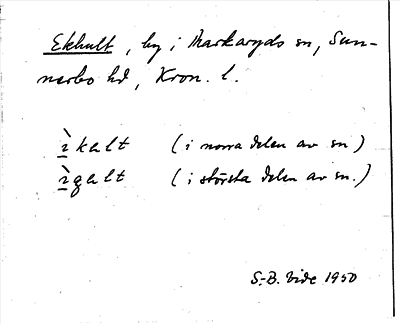 Ekhult, by i Markaryds sn, Sun-
nerbo hd, Kron. l.
ìkalt (i norra delen av sn)
ìgalt (i största delen av sn.)
S.-B. Vide 1950